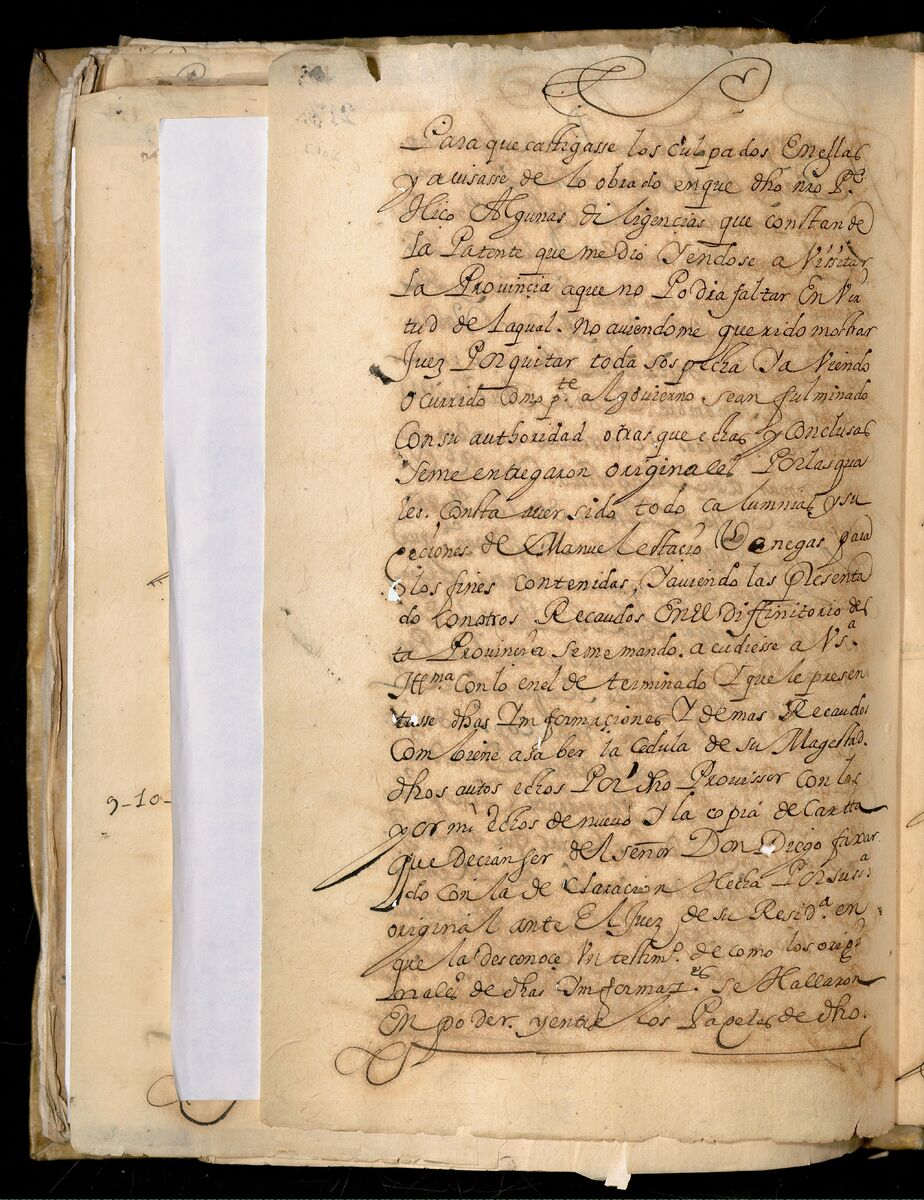 Para que castigasse los culpados En ellas
y avisasse de lo obrado en que dho nro Pe
Hico Algunas diligencias que constan de
La Patente que me dio Yendose a Vissitar
La Provincia a que no Podia faltar En Vir
tud de La qual. No aviendome querido mostrar
Juez Por quitar toda sospecha Ya Viendo
ocurrido Como pte. al govierno sean fulminado
Con su authoridad otras que echas y Conclusas
Seme entregaron originales Por las qua
les. Consta aver sido todo calumnias y su
geciones de Manuel estacio Venegas para
los fines contenidas, Yaviendo las Presenta
do Con otros Recaudos En El Diffinitorio des
ta Provincia se me mando. acudiesse a Vsa
Illma Con lo en el determinado Y que le presen
tasse dhas Ynformaciones Y demas Recaudos
Combiene a saber la Cedula de su Magestad.
dhos autos echos Por dho Provissor con los
y por mi Echos de nuevo Y la copia de Cartta
que decian ser del señor Don Diego faxar
do con la declaracion Hecha Por su sa
original ante El Juez de su Resida. en
que la desconoce Vn testimo. de como los origi
nales de dhas Ynformazes. se Hallaron
En poder. y entre los Papeles de dho.
9-10-